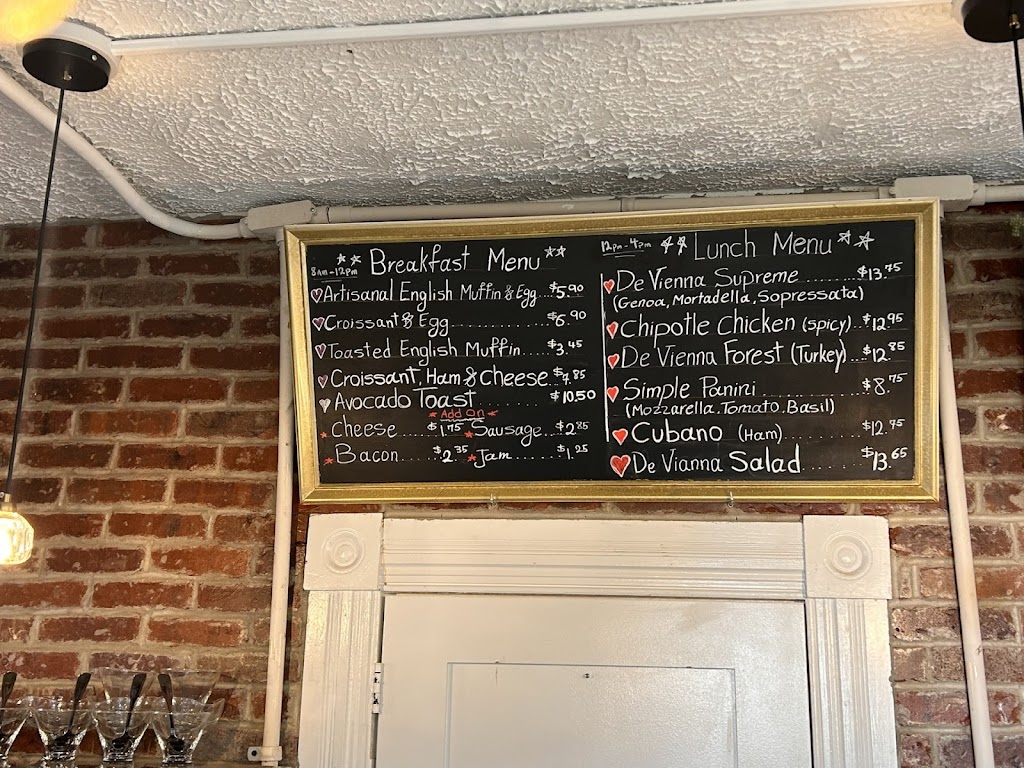 8AM-12pm Breakfast Menu
Artisanal English Muffin & Egg...$5.90
Croissant & Egg...$6.90
Toasted English Muffin...$3.45
Croissant, Ham & Cheese $7.85
Avocado Toast...$10.50
Add on
Cheese...$1.75 Sausage...$2.85
Bacon...$2.35 Jam...$1.25
12pm-4pm Lunch Menu
De Vienna Supreme...$13.75
(Genoa, Mortadella, Sopressata)
Chipotle Chicken (spicy)...$12.95
De Vienna Forest (Turkey)...$12.85
Simple Panini...$8.75
(Mozzarella. Tomato. Basil)
Cubano (Ham)...$12.75
De Vianna Salad...$13.65